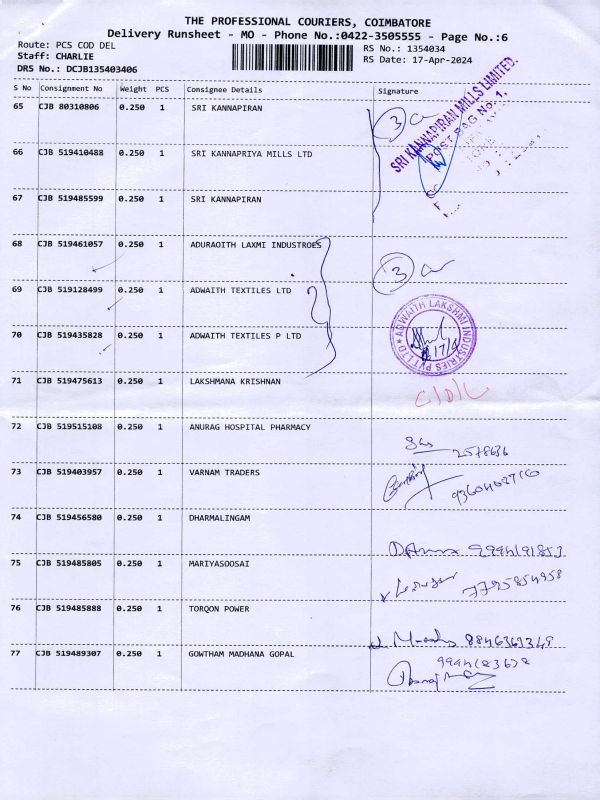 THE PROFESSIONAL COURIERS, COIMBATORE
Delivery Runsheet - MO - Phone No.:0422-3505555 - Page No.:6
Route: PCS COD DEL
RS No.: 1354034
Staff: CHARLIE
RS Date: 17-Apr-2024
DRS No.: DCJB135403406
S No Consignment No Weight PCS Consignee Details Signature
65 CJB 80310806 0.250 1 SRI KANNAPIRAN
3
SRI KANNAPIRAN MILLS LIMITED.
POST BAG No. 1,
66 CJB 519410488 0.250 1 SRI KANNAPRIYA MILLS LTD
67 CJB 519485599 0.250 1 SRI KANNAPIRAN
68 CJB 519461057 0.250 1 ADURAOITH LAXMI INDUSTROES
3
69 CJB 519128499 0.250 1 ADWAITH TEXTILES LTD
70 CJB 519435828 0.250 1 ADWAITH TEXTILES P LTD
ADWAITH LAKSHMI INDUSTRIES PVT LTD
17/4
71 CJB 519475613 0.250 1 LAKSHMANA KRISHNAN
C/D/L
72 CJB 519515108 0.250 1 ANURAG HOSPITAL PHARMACY
2578636
73 CJB 519403957 0.250 1 VARNAM TRADERS
74 CJB 519456580 0.250 1 DHARMALINGAM
9994191853
75 CJB 519485805 0.250 1 MARIYASOOSAI
7725854958
76 CJB 519485888 0.250 1 TORQON POWER
77 CJB 519489307 0.250 1 GOWTHAM MADHANA GOPAL